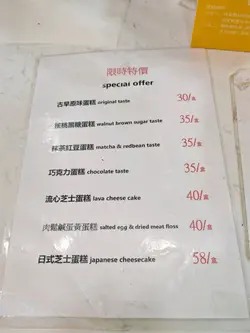 限時特價
special offer
古早原味蛋糕 original taste 30/盒
核桃黑糖蛋糕 walnut brown sugar taste 35/盒
抹茶紅豆蛋糕 matcha & redbean taste 35/盒
巧克力蛋糕 chocolate taste 35/盒
流心芝士蛋糕 lava cheese cake 40/盒
肉鬆鹹蛋黃蛋糕 salted egg & dried meat floss 40/盒
日式芝士蛋糕 japanese cheesecake 58/盒